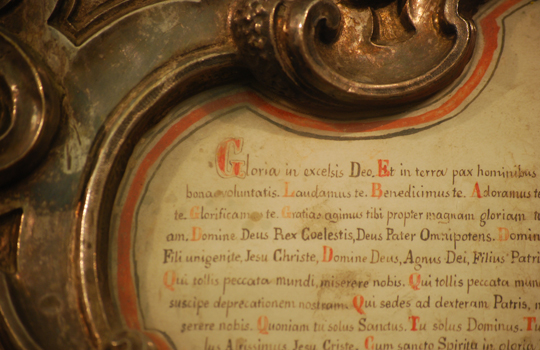 Gloria in excelsis Deo. Et in terra pax hominibus
bonae voluntatis. Laudamus te. Benedicimus te. Adoramus te
te. Glorificamus te. Gratias agimus tibi propter magnam gloriam tu
am. Domine Deus Rex Coelestis, Deus Pater Omnipotens. Domin
Fili unigenite, Jesu Christe, Domine Deus, Agnus Dei, Filius Patri
Qui tollis peccata mundi, miserere nobis. Qui tollis peccata mun
suscipe deprecationem nostram. Qui sedes ad dexteram Patris, m
serere nobis. Quoniam tu solus Sanctus. Tu solus Dominus. Tu
lus Altissimus Jesu Criste. Cum sancto Spiritu in gloria